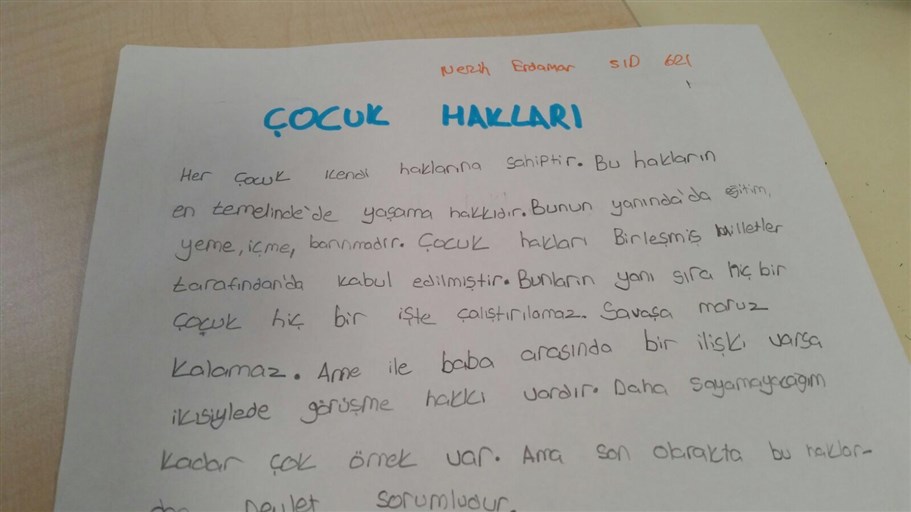 Nezih Erdamar SID 621
ÇOCUK HAKLARI
Her Çocuk kendi haklarına sahiptir. Bu hakların
en temelinde'de yaşama hakkıdır. Bunun yanında'da eğitim,
yeme, içme, barınmadır. Çocuk hakları Birleşmiş Milletler
tarafından'da kabul edilmiştir. Bunların yanı sıra hiç bir
çoçuk hiç bir işte çalıştırılamaz. Savaşa maruz
kalamaz. Anne ile baba arasında bir ilişki varsa
ikisiylede görüşme hakkı vardır. Daha sayamayacağım
kadar çok örnek var. Ama son olarakta bu haklar-
dan Devlet sorumludur.